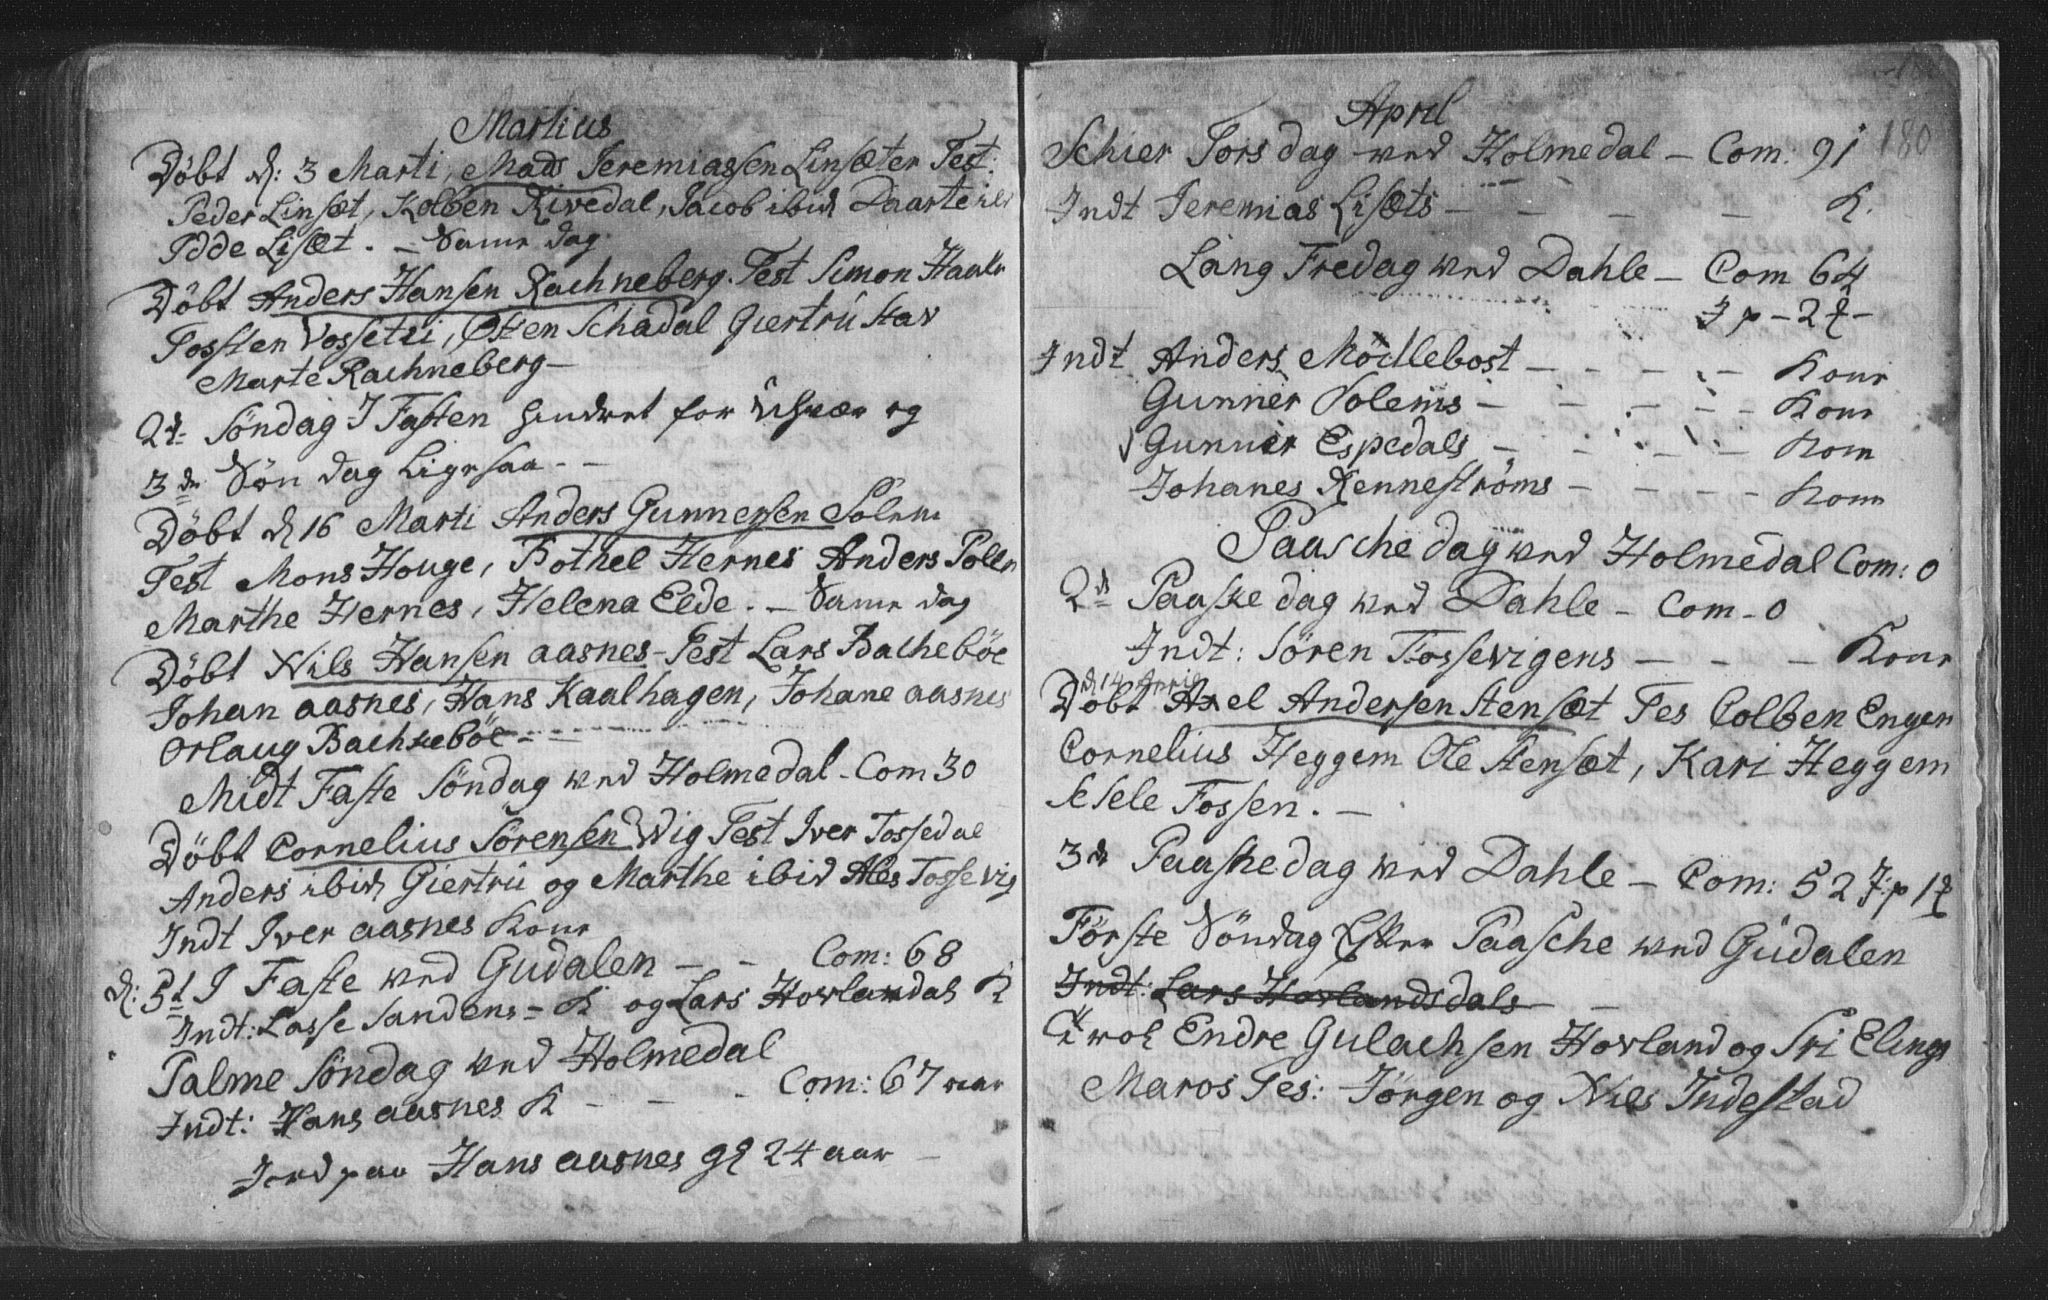 Martius
Döbt d: 3 Marti, Mads Jeremiassen Linsæter Test:
Peder Linsæt, Kolben Rivedal, Jacob ibid Daarte
Idde Lisæt. – Same dag
Döbt Anders Hansen Rachneberg. Test Simon
Tossten Vossetei, Osten Schadal Giertru Hav
Marte Rachneberg –
2d Söndag I Fasten hindret for Uhvær og
3de Søndag Ligesaa – –
Döbt d 16 Marti Anders Gunnersen Solem
Test Mons Houge, Bothel Hernes Anders Polln
Marthe Hernes, Helena Eede. – Same dag
Döbt Nils Hansen aasnes – Test Lars Bacheböe
Johan aasnes, Hans Kaalhagen, Johane aasnes
Orlaug Bacheböe –
Midt Faste Söndag ved Holmedal – Com 30
Döbt Cornelius Sörensen Wig Test Iver Tossedal
Anders ibid Giertru og Marthe ibid Ales Tossevig
Indt Iver aasnes Kone
d: 5t I Faste ved Gudalen – – Com: 68
Indt: Lasse Sandens – K og Lars Hovlandal K
Palme Söndag ved Holmedal
Com: 67
Indt: Hans aasnes K – – –
Jord paa Hans aasnes 24 aar –
April
180
Schier Torsdag ved Holmedal – Com. 91
Indt Jeremias Lisæts – – – – K.
Lang Fredag ved Dahle – Com 64
J p – 2
Indt Anders Mödlebost – – – – – Kone
Gunner Solems – – – – – Kone
Gunner Espedals – – – – – Kone
Johanes Renneströms – – – – Kone
Paaschedag ved Holmedal Com: 0
2d Paaskedag ved Dahle – Com – 0
Indt: Sören Tossevigens – – – Kone
d 14 April
Döbt Axel Andersen Stensæt Tes Colben Engen
Cornelius Heggem Ole Stensæt, Kari Heggem
Sesele Fossen. –
3d Paaskedag ved Dahle – Com: 52 J: p 1
Förste Söndag Efter Paasche ved Gudalen
Indt: Lars Hovlandsdals –
Endre Gulachsen Hovland og Siri Elings
Maros Tes: Jörgen og Nils Indestad